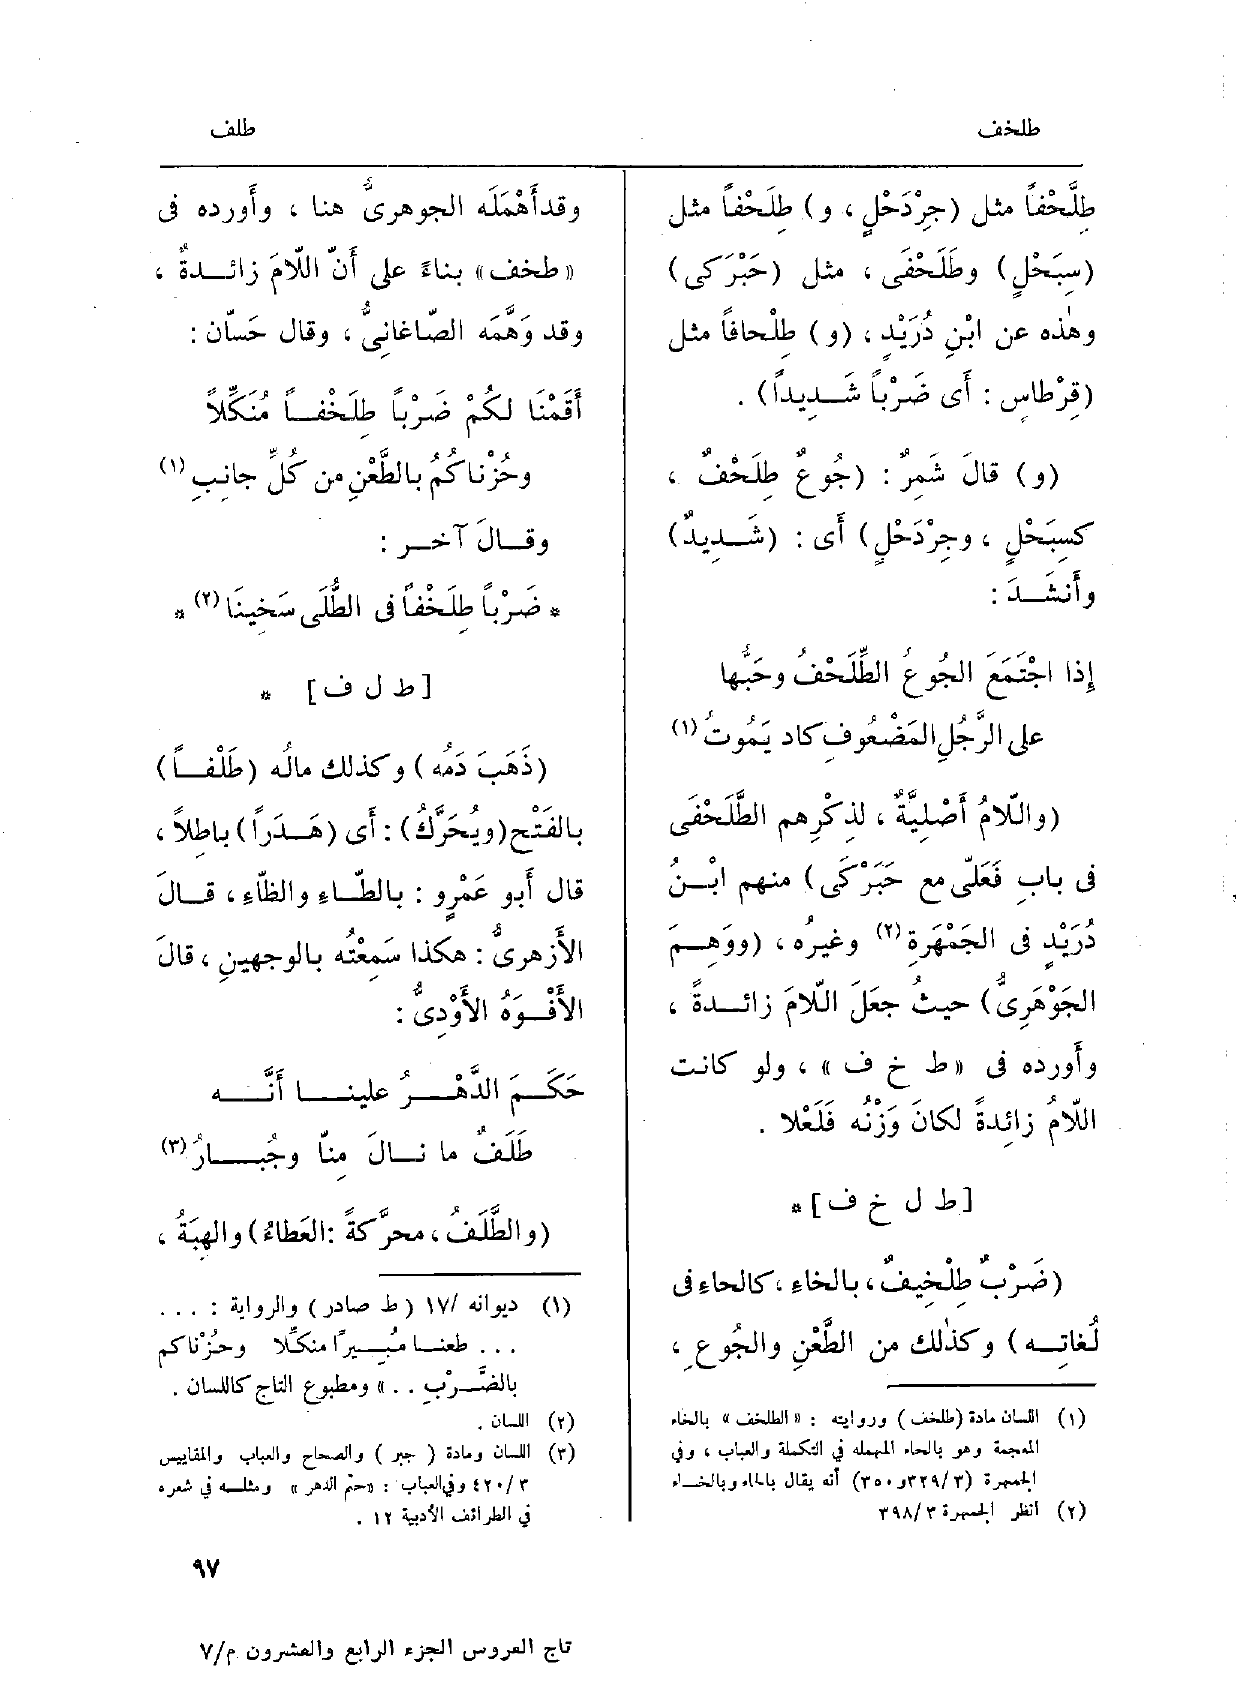 طلخف
طلف
طِلَّحْفاً مثل (جِرْدَحْلٍ ، و) طِلَحْفاً مثل
(سِبَحْلٍ) وطَلَحْفَى ، مثل (حَبَرْكى)
وهٰذه عن ابْنِ دُرَيْدٍ ، (و) طِلْحافاً مثل
(قِرْطاسٍ : أَى ضَرْباً شَديدًا) .
(و) قالَ شَمِرٌ : (جُوعٌ طِلَحْفٌ ،
كسِبَحْلٍ ، وجِرْدَحْلٍ) أَى : (شَديدٌ)
وأَنشَدَ :
إِذا اجْتَمَعَ الجُوعُ الطِّلَحْفُ وحُبُّها
على الرَّجُلِ المَضْعُوفِ كاد يَمُوتُ (١)
(واللّامُ أَصْلِيَّةٌ ، لذِكْرِهم الطَّلَحْفَى
فى بابِ فَعَلَّى مع حَبَرْكَى) منهم ابْنُ
دُرَيْدٍ فى الجَمْهَرةِ (٢) وغيرُه ، (ووَهِمَ
الجَوْهَرِىُّ) حيثُ جعَلَ اللّامَ زائدةً ،
وأَورده فى «ط خ ف» ، ولو كانت
اللّامُ زائِدةً لكانَ وَزْنُه فَلَعْلا .
[ط ل خ ف] *
(ضَرْبٌ طِلْخِيفٌ ، بالخاءِ ، كالحاءِ فى
لُغاتِه) وكذٰلك من الطَّعْنِ والجُوعِ ،
(١) اللسان مادة (طلخف) وروايته : «الطلخف» بالخاء
المعجمة وهو بالحاء المهملة في التكملة والعباب ، وفي
الجمهرة (٣٢٩/٣و٣٥٠) أنه يقال بالحاء وبالخاء
(٢) انظر الجمهرة ٣٩٨/٣
وقد أَهْمَلَه الجوهرىُّ هنا ، وأَورده فى
«طخف» بناءً على أَنّ اللّامَ زائدةٌ ،
وقد وَهَّمَه الصّاغانِىُّ ، وقال حَسّان :
أَقَمْنَا لكُمْ ضَرْباً طِلَخْفاً مُنَكِّلاً
وحُزْناكُمُ بالطَّعْنِ من كُلِّ جانِبِ (١)
وقالَ آخر :
* ضَرْباً طِلَخْفاً فى الطُّلَى سَخِينَا (٢) *
[ط ل ف] *
(ذَهَبَ دَمُه) وكذلك مالُه (طَلْفاً)
بالفَتْحِ (ويُحَرَّكُ) : أَى (هَدَراً) باطِلاً ،
قال أَبو عَمْرٍو : بالطّاءِ والظّاءِ ، قالَ
الأَزهرىُّ : هكذا سَمِعْتُه بالوجهينِ ، قالَ
الأَفْوَهُ الأَوْدِىُّ :
حَكَمَ الدَّهْرُ علينا أَنَّه
طَلَفٌ ما نالَ مِنّا وجُبارُ (٣)
(والطَّلَفُ ، محرَّكةً : العَطاءُ) والهِبَةُ ،
(١) ديوانه /١٧ (ط صادر) والرواية : ...
... طعنا مُبيرًا منكِّلا وحُزْناكم
بالضَّرْبِ ..» ومطبوع التاج كاللسان .
(٢) اللسان .
(٣) اللسان ومادة ( جبر ) والصحاح والعباب والمقاييس
٤٢٠/٣ وفي العباب : «حَتَم الدهر» ومثله في شعره
في الطرائف الأدبية ١٢ .
٩٧
تاج العروس الجزء الرابع والعشرون م/٧